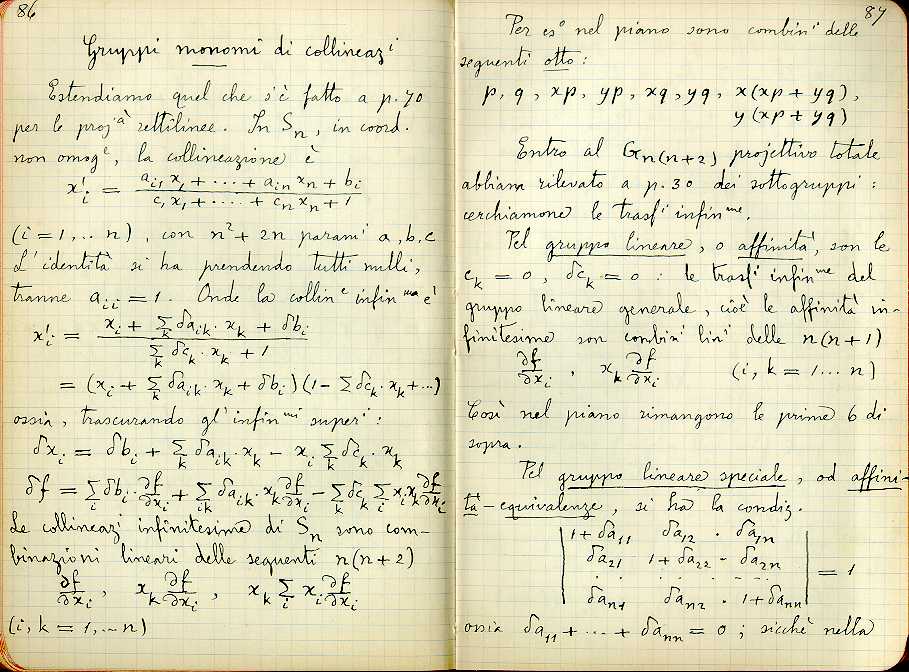 86
Gruppi monomi di collineaz^i
Estendiamo quel che s'è fatto a p. 70
per le proj^tà rettilinee. In S_n, in coord.
non omog^e, la collineazione è
x'_i = (a_{i1} x_1 + ··· + a_{in} x_n + b_i) / (c_1 x_1 + ···· + c_n x_n + 1)
(i = 1, .. n), con n² + 2n param^i a, b, c
L'identità si ha prendendo tutti nulli,
tranne a_{ii} = 1. Onde la collin^e infin^ma è
x'_i = (x_i + Σ_k δa_{ik}· x_k + δb_i) / (Σ_k δc_k· x_k + 1)
= (x_i + Σ_k δa_{ik}· x_k + δb_i)(1 - Σ δc_k· x_k + ...)
ossia, trascurando gl'infin^mi super^i :
δx_i = δb_i + Σ_k δa_{ik}· x_k - x_i Σ_k δc_k· x_k
δf = Σ_i δb_i· ∂f/∂x_i + Σ_{ik} δa_{ik}· x_k ∂f/∂x_i - Σ_k δc_k Σ_i x_i x_k ∂f/∂x_i
Le collineaz^i infinitesime di S_n sono com-
binazioni lineari delle seguenti n(n+2)
∂f/∂x_i , x_k ∂f/∂x_i , x_k Σ_i x_i ∂f/∂x_i
(i, k = 1, .. n)
87
Per es° nel piano sono combin^i delle
seguenti otto :
p, q, xp, yp, xq, yq, x(xp + yq),
y(xp + yq)
Entro al G_{n(n+2)} projettivo totale
abbiam rilevato a p. 30 dei sottogruppi :
cerchiamone le trasf^i infin^me.
Pel gruppo lineare, o affinità, son le
c_k = 0, δc_k = 0 : le trasf^i infin^me del
gruppo lineare generale, cioè le affinità in-
finitesime son combin^i lin^i delle n(n+1)
∂f/∂x_i , x_k ∂f/∂x_i (i, k = 1 ... n)
Così nel piano rimangono le prime 6 di
sopra.
Pel gruppo lineare speciale, od affini-
tà-equivalenze, si ha la condiz.
| 1+δa_{11} δa_{12} · δa_{1n} |
| δa_{21} 1+δa_{22} - δa_{2n} | = 1
| . . . . . . |
| δa_{n1} δa_{n2} · 1+δa_{nn} |
ossia δa_{11} + ... + δa_{nn} = 0 ; sicchè nella